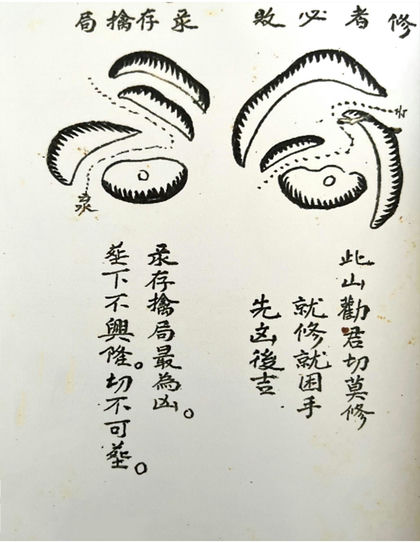 修者必敗
水
此山勸君切莫修
就修就困手
先凶後吉
彔存擒局
彔存擒局最為凶。
塟下不興隆。切不可塟。